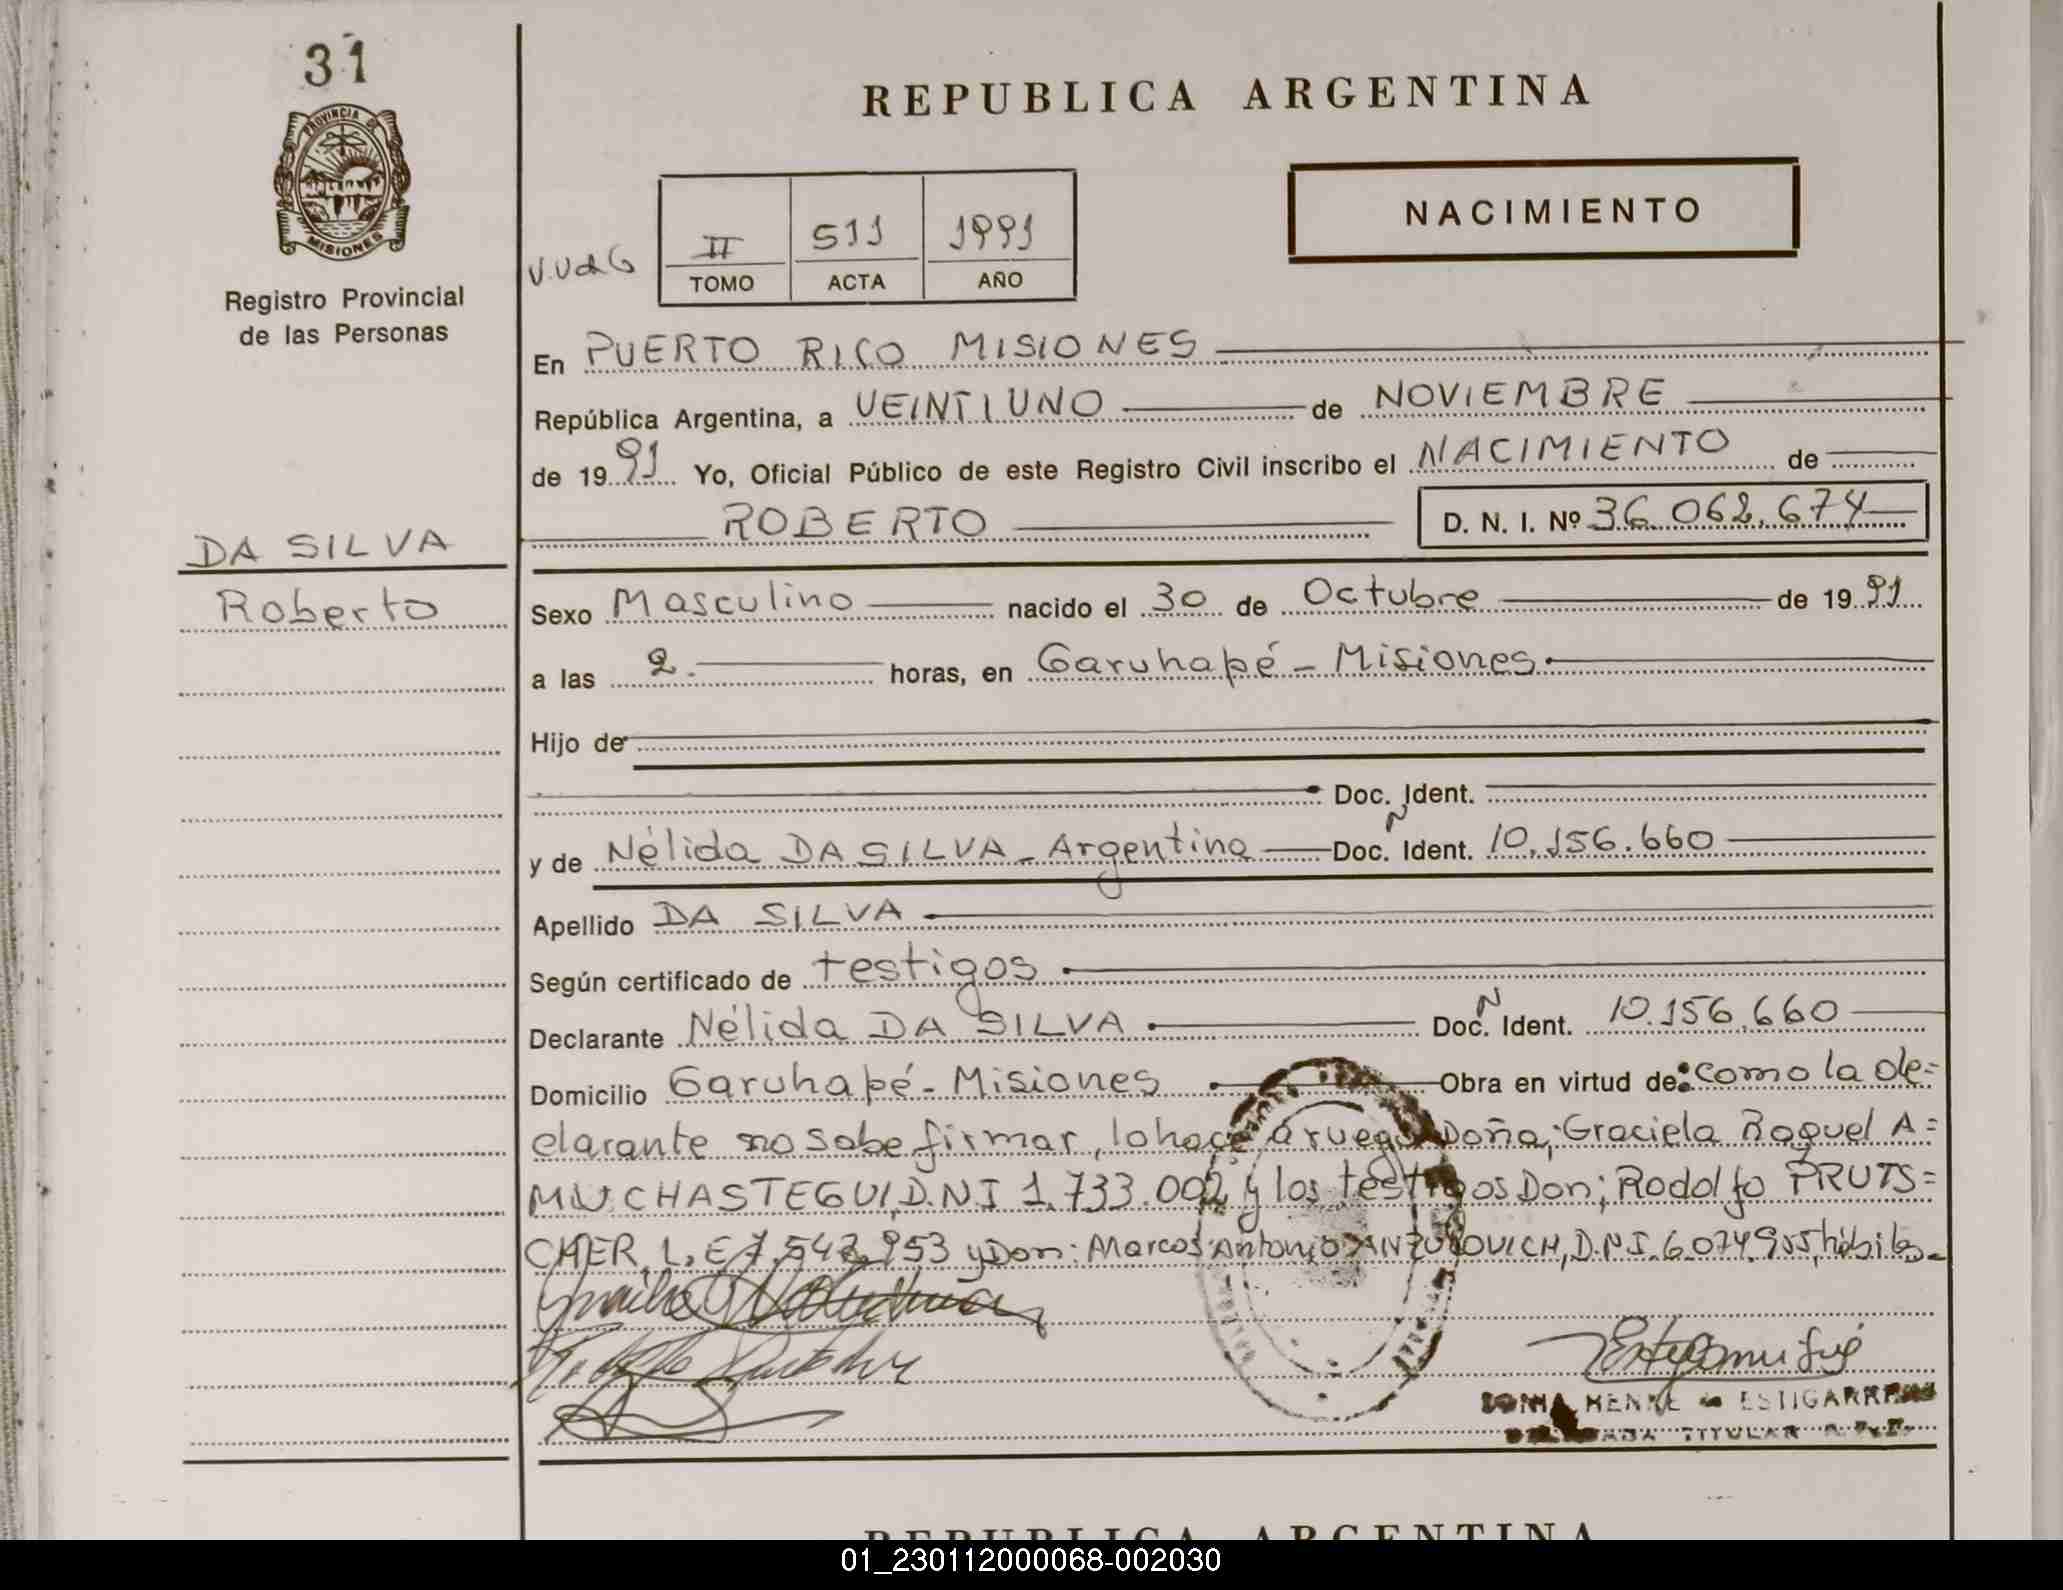 31
PROVINCIA DE
MISIONES
Registro Provincial
de las Personas
DA SILVA
Roberto
REPUBLICA ARGENTINA
NACIMIENTO
II 511 1991
TOMO ACTA AÑO
En PUERTO RICO MISIONES
República Argentina, a VEINTIUNO de NOVIEMBRE
de 1991 Yo, Oficial Público de este Registro Civil inscribo el NACIMIENTO de
ROBERTO D. N. I. Nº 36.062.674
Sexo Masculino nacido el 30 de Octubre de 1991
a las 2. horas, en Garuhapé - Misiones
Hijo de
Doc. Ident.
y de Nélida DA SILVA - Argentina Doc. N Ident. 10.156.660
Apellido DA SILVA
Según certificado de testigos
Declarante Nélida DA SILVA Doc. N Ident. 10.156.660
Domicilio Garuhapé - Misiones Obra en virtud de: como la de=
clarante no sabe firmar, lo hace a ruego Doña; Graciela Raquel A=
MUCHASTEGUI, D.N.I 1.733.002 y los testigos Don; Rodolfo PRUTS=
CHER, L.E 7.543.953 y Don: Marcos Antonio D.N.I. 6.074.905, hábiles.
SONIA HENKE de ESTIGARRIBIA
TITULAR
REPUBLICA ARGENTINA
01_230112000068-002030